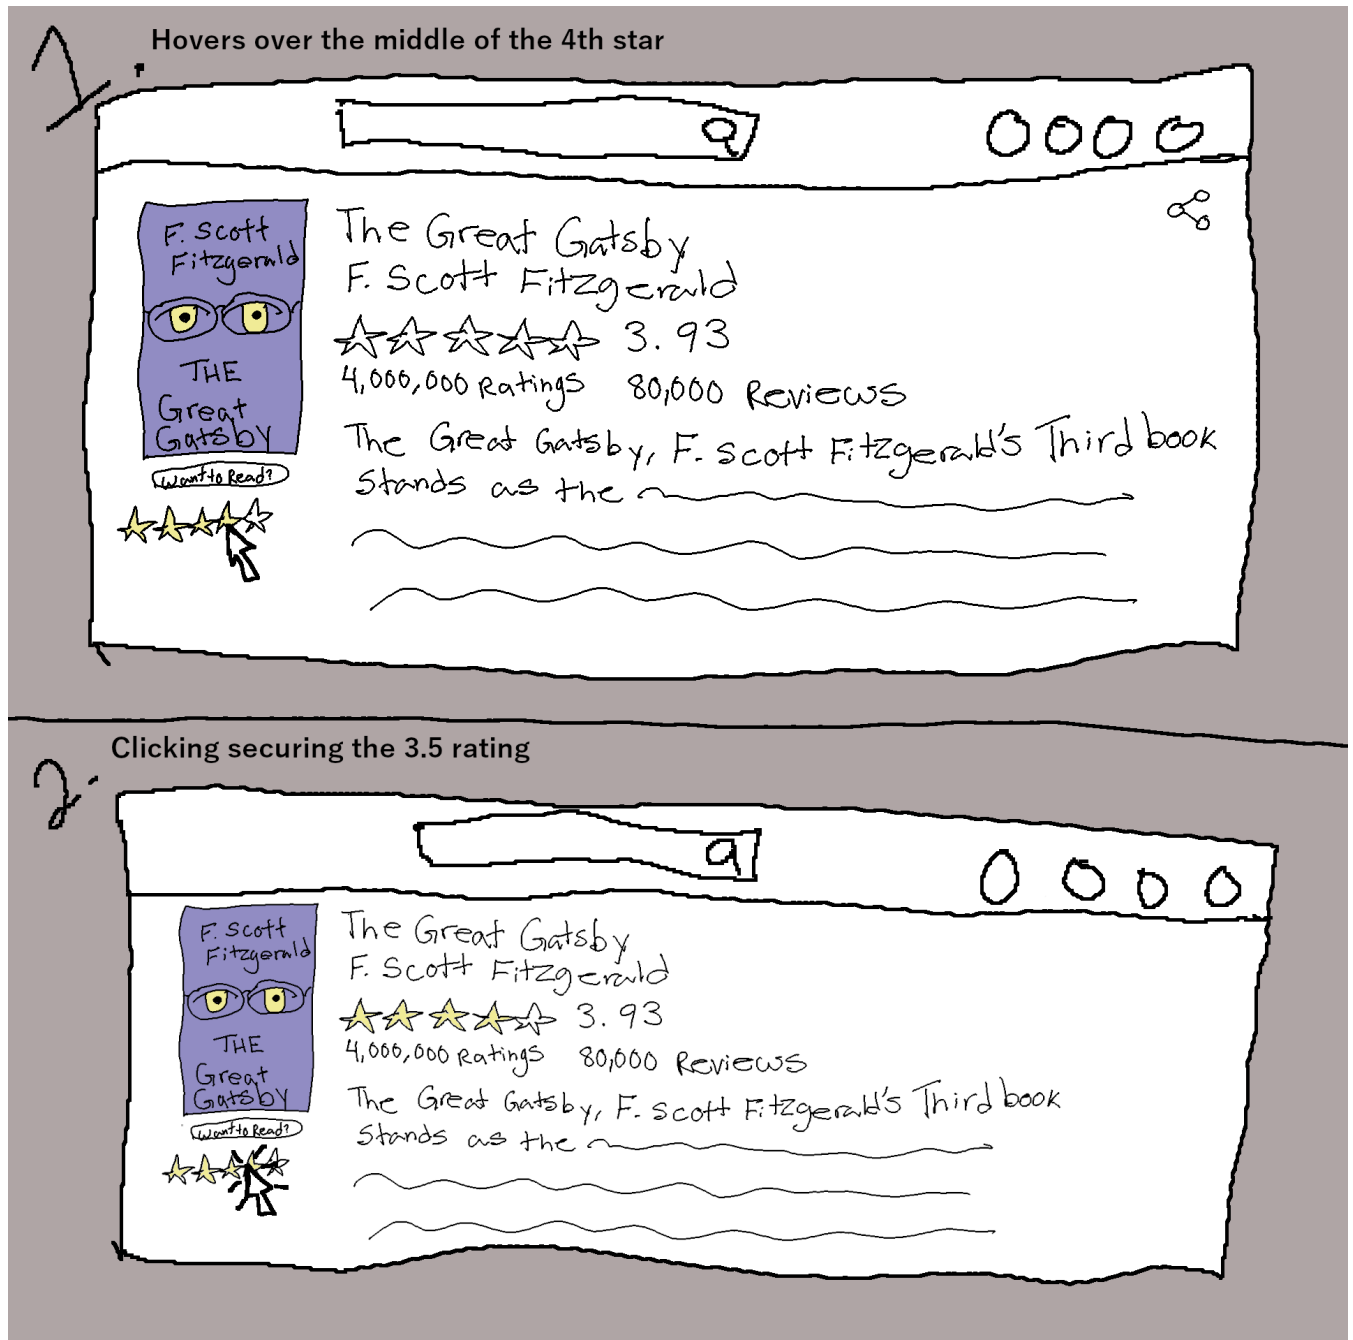 1.
Hovers over the middle of the 4th star
F. Scott
Fitzgerald
THE
Great
Gatsby
Want to Read?
The Great Gatsby
F. Scott Fitzgerald
3.93
4,000,000 Ratings 80,000 Reviews
The Great Gatsby, F. Scott Fitzgerald's Third book
Stands as the
2.
Clicking securing the 3.5 rating
F. Scott
Fitzgerald
THE
Great
Gatsby
Want to Read?
The Great Gatsby
F. Scott Fitzgerald
3.93
4,000,000 Ratings 80,000 Reviews
The Great Gatsby, F. Scott Fitzgerald's Third book
Stands as the